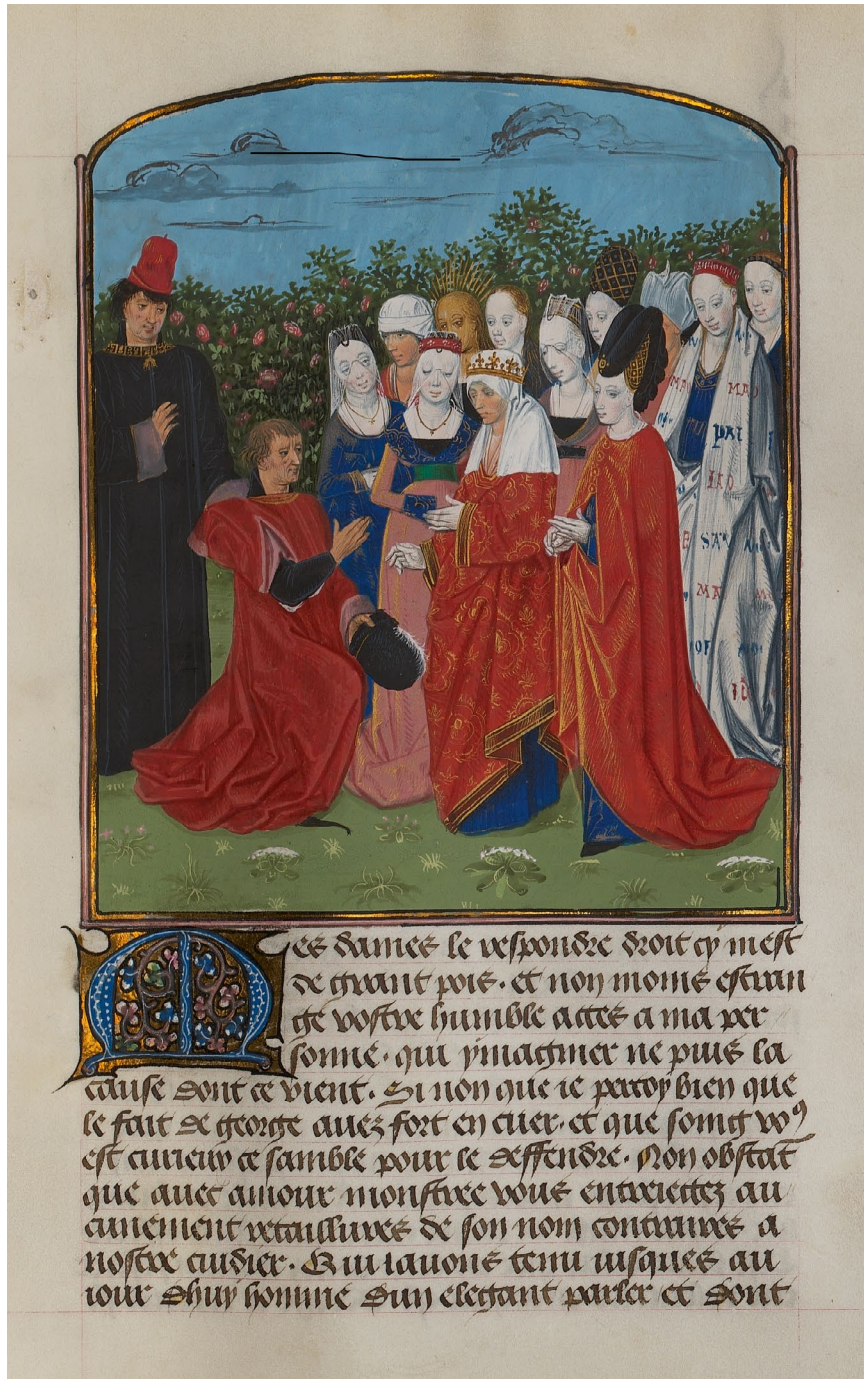 MA
MA
PAI
IHO
SA
MA
MA
OF
Mes dames le respondre droit cy mest
de grant pois · et non moins estran
ge vostre humble actes a ma per
sonne · qui ymaginer ne puis la
cause dont ce vient · Si non que ie percoy bien que
le fait de george auez fort en cuer · et que soing voꝰ
est curieux ce samble pour le deffendre · Non obstāt
que auec amour monstree vous entreiettez au
cunement retaillures de son nom contraires a
nostre cuidier · Qui lauons tenu iusques au
iour dhuy homme dun elegant parler et dont